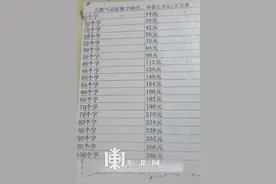 单价2.8元/立方米
5个字 14元
10个字 28元
15个字 42元
20个字 56元
25个字 70元
30个字 84元
35个字 98元
40个字 112元
45个字 126元
50个字 140元
55个字 154元
60个字 168元
65个字 182元
70个字 196元
75个字 210元
80个字 224元
85个字 238元
90个字 252元
95个字 266元
100个字 280元
东北网